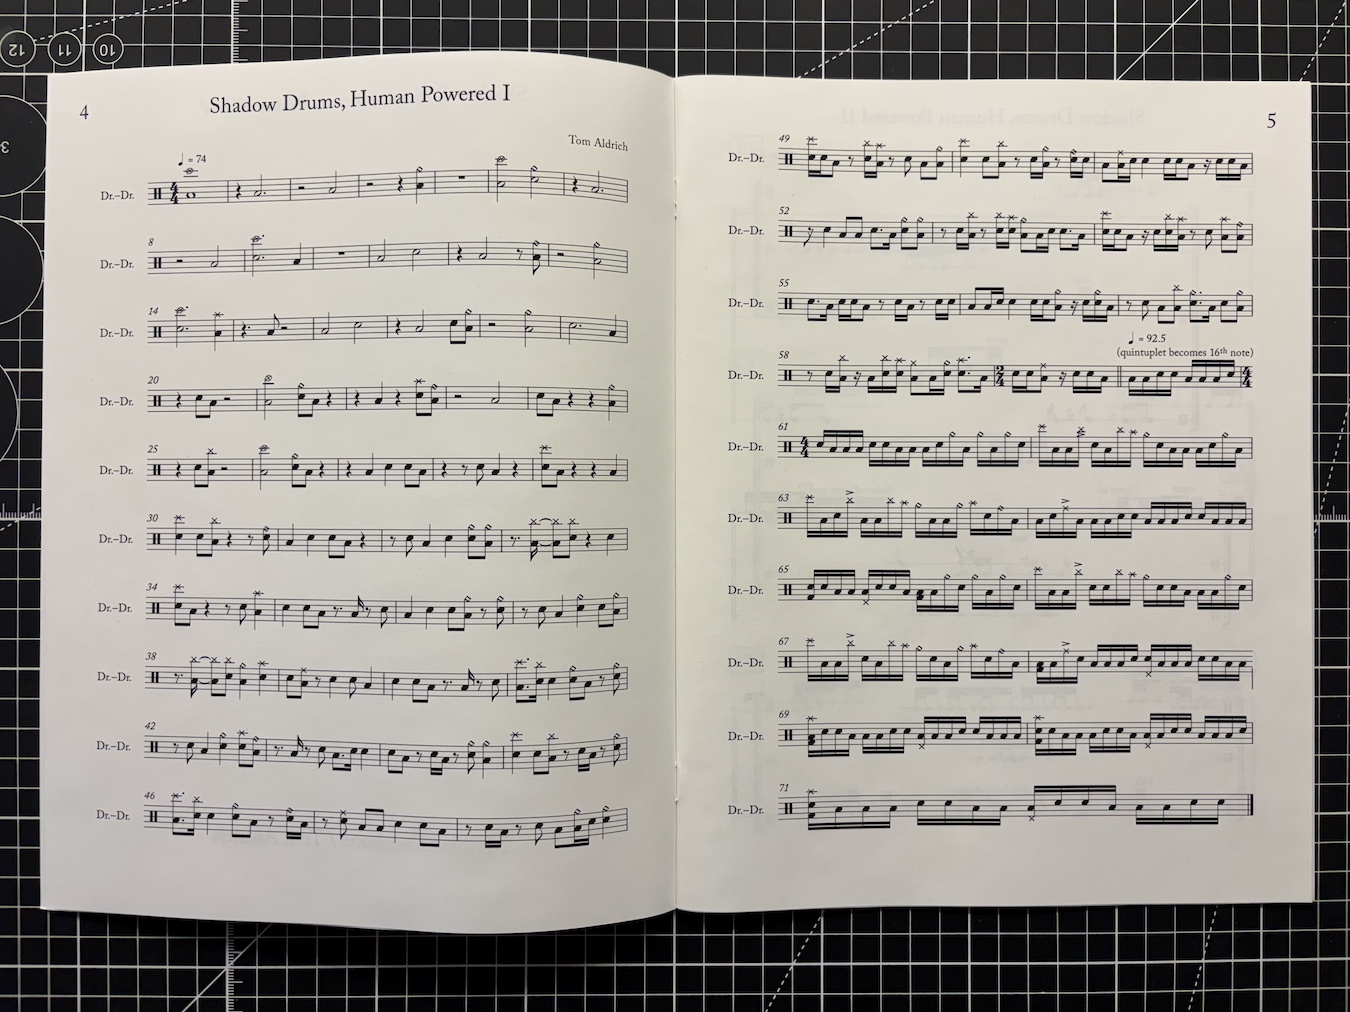 12 11 10
3
4
Shadow Drums, Human Powered I
Tom Aldrich
♩ = 74
Dr.–Dr.
8
Dr.–Dr.
14
Dr.–Dr.
20
Dr.–Dr.
25
Dr.–Dr.
30
Dr.–Dr.
34
Dr.–Dr.
38
Dr.–Dr.
42
Dr.–Dr.
46
Dr.–Dr.
5
49
Dr.–Dr.
52
Dr.–Dr.
55
Dr.–Dr.
♩ = 92.5
(quintuplet becomes 16th note)
58
Dr.–Dr.
61
Dr.–Dr.
63
Dr.–Dr.
65
Dr.–Dr.
67
Dr.–Dr.
69
Dr.–Dr.
71
Dr.–Dr.